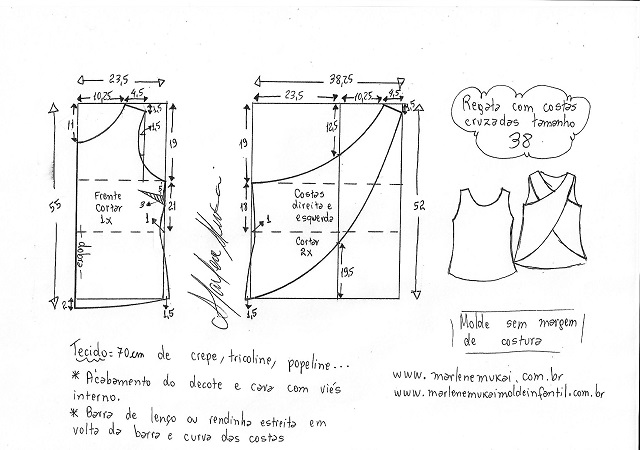 23,5
38,25
10,25
4,5
23,5
10,25
4,5
1,5
1,5
11
1,5
12,5
19
19
Regata com costas
cruzadas tamanho
38
Frente
Cortar
1x
3
21
55
1
dobra
2
1,5
Marlene Mukai
Costas
direita e
esquerda
Cortar
2x
18
1
52
19,5
1,5
Molde sem margem
de costura
Tecido = 70cm de crepe, tricoline, popeline...
* Acabamento do decote e cava com viés
interno.
* Barra de lenço ou rendinha estreita em
volta da barra e curva das costas
www.marlenemukai.com.br
www.marlenemukaimoldeinfantil.com.br